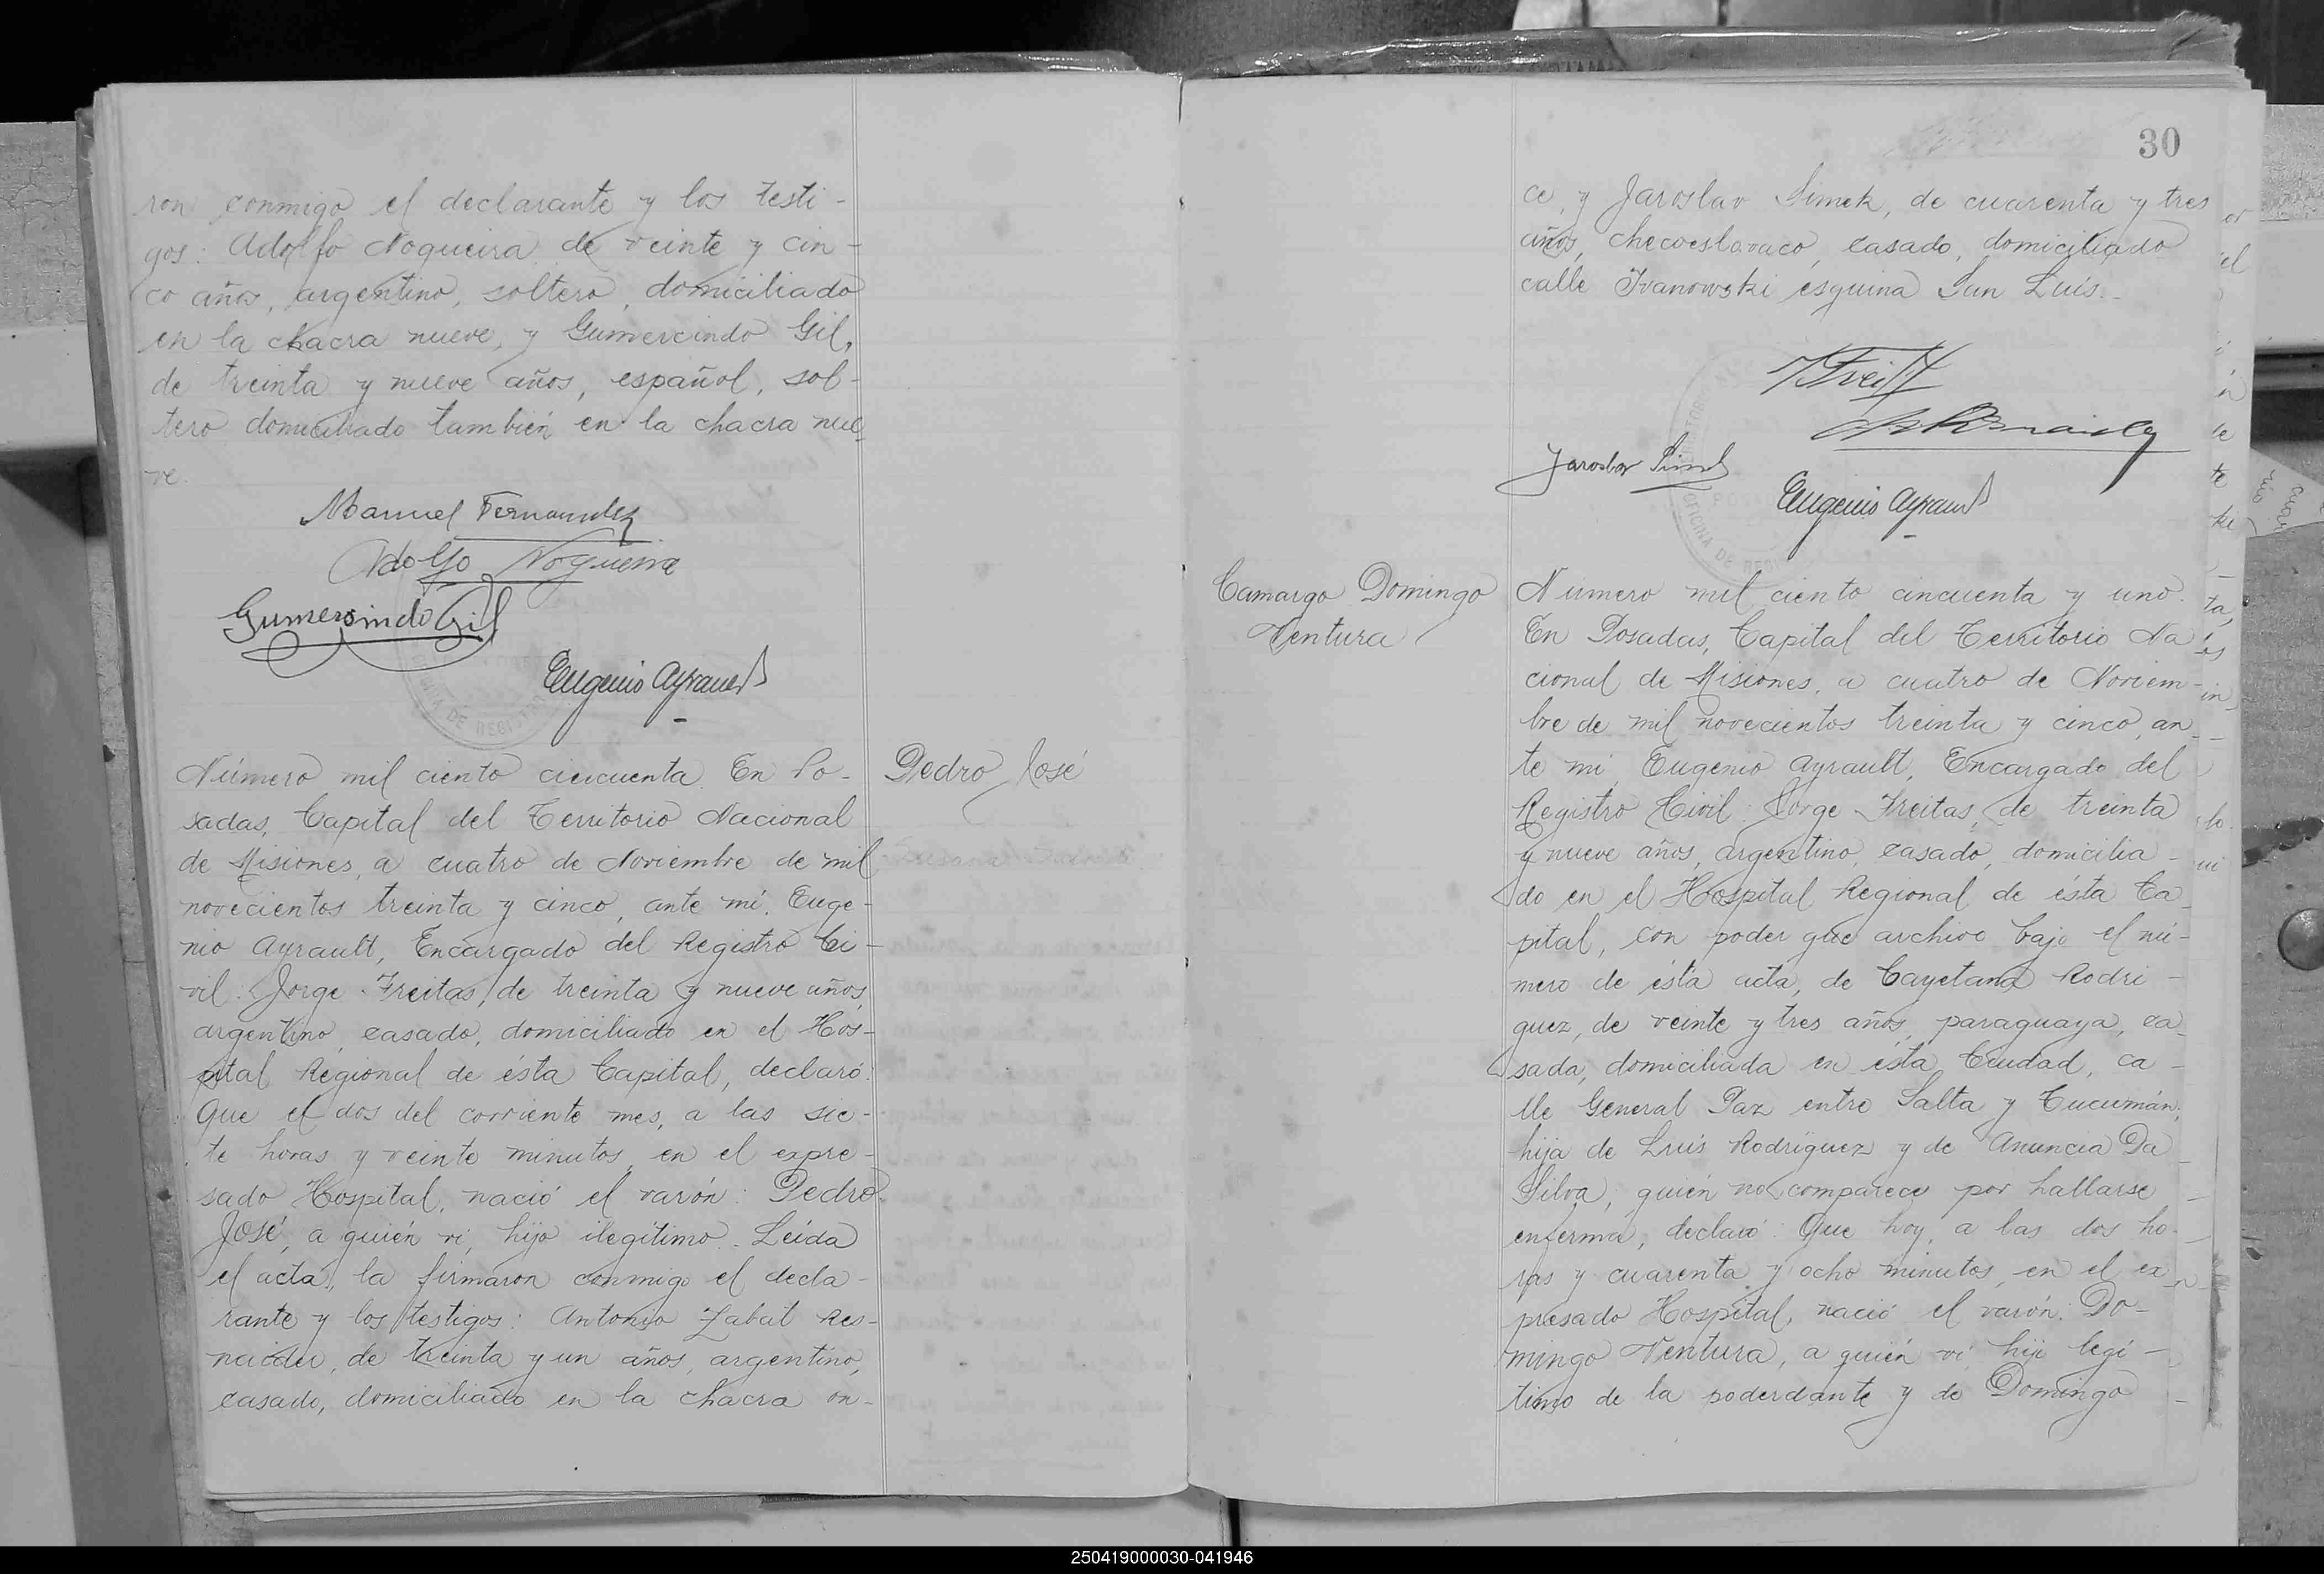 ron conmigo el declarante y los testi-
gos: Adolfo Nogueira de veinte y cin-
co años, argentino, soltero, domiciliado
en la chacra nueve, y Gumercindo Gil,
de treinta y nueve años, español, sol-
tero domiciliado también en la chacra nue-
ve.
Manuel Fernandez
Adolfo Nogueira
Gumersindo Gil
Eugenio Ayrault
Número mil ciento cincuenta. En Po-
sadas, Capital del Territorio Nacional
de Misiones, a cuatro de Noviembre de mil
novecientos treinta y cinco, ante mí, Euge-
nio Ayrault, Encargado del Registro Ci-
vil: Jorge Freitas, de treinta y nueve años,
argentino, casado, domiciliado en el Hos-
pital Regional de ésta Capital, declaró:
Que el dos del corriente mes, a las sie-
te horas y veinte minutos, en el expre-
sado Hospital, nació el varón: Pedro
José, a quién vi, hijo ilegítimo. Leída
el acta, la firmaron conmigo el decla-
rante y los testigos: Antonio Zabat Res-
naider, de treinta y un años, argentino,
casado, domiciliado en la chacra on-
Pedro José
30
ce, y Jaroslav Simek, de cuarenta y tres
años, checoeslovaco, casado, domiciliado
calle Ivanowski esquina San Luis.
Jaroslav Simek
Eugenio Ayrault
OFICINA DE REGISTRO
Camargo Domingo
Ventura
Número mil ciento cincuenta y uno.
En Posadas, Capital del Territorio Na-
cional de Misiones, a cuatro de Noviem-
bre de mil novecientos treinta y cinco, an-
te mí, Eugenio Ayrault, Encargado del
Registro Civil: Jorge Freitas, de treinta
y nueve años, argentino, casado, domicilia-
do en el Hospital Regional de ésta Ca-
pital, con poder que archivo bajo el nú-
mero de ésta acta, de Cayetana Rodri-
guez, de veinte y tres años, paraguaya, ca-
sada, domiciliada en ésta Ciudad, ca-
lle General Paz entre Salta y Tucumán,
hija de Luis Rodríguez y de Anuncia Da
Silva; quién no comparece por hallarse
enferma, declaró: Que hoy, a las dos ho-
ras y cuarenta y ocho minutos, en el ex-
presado Hospital, nació el varón: Do-
mingo Ventura, a quién vi, hijo legí-
timo de la poderdante y de Domingo
250419000030-041946